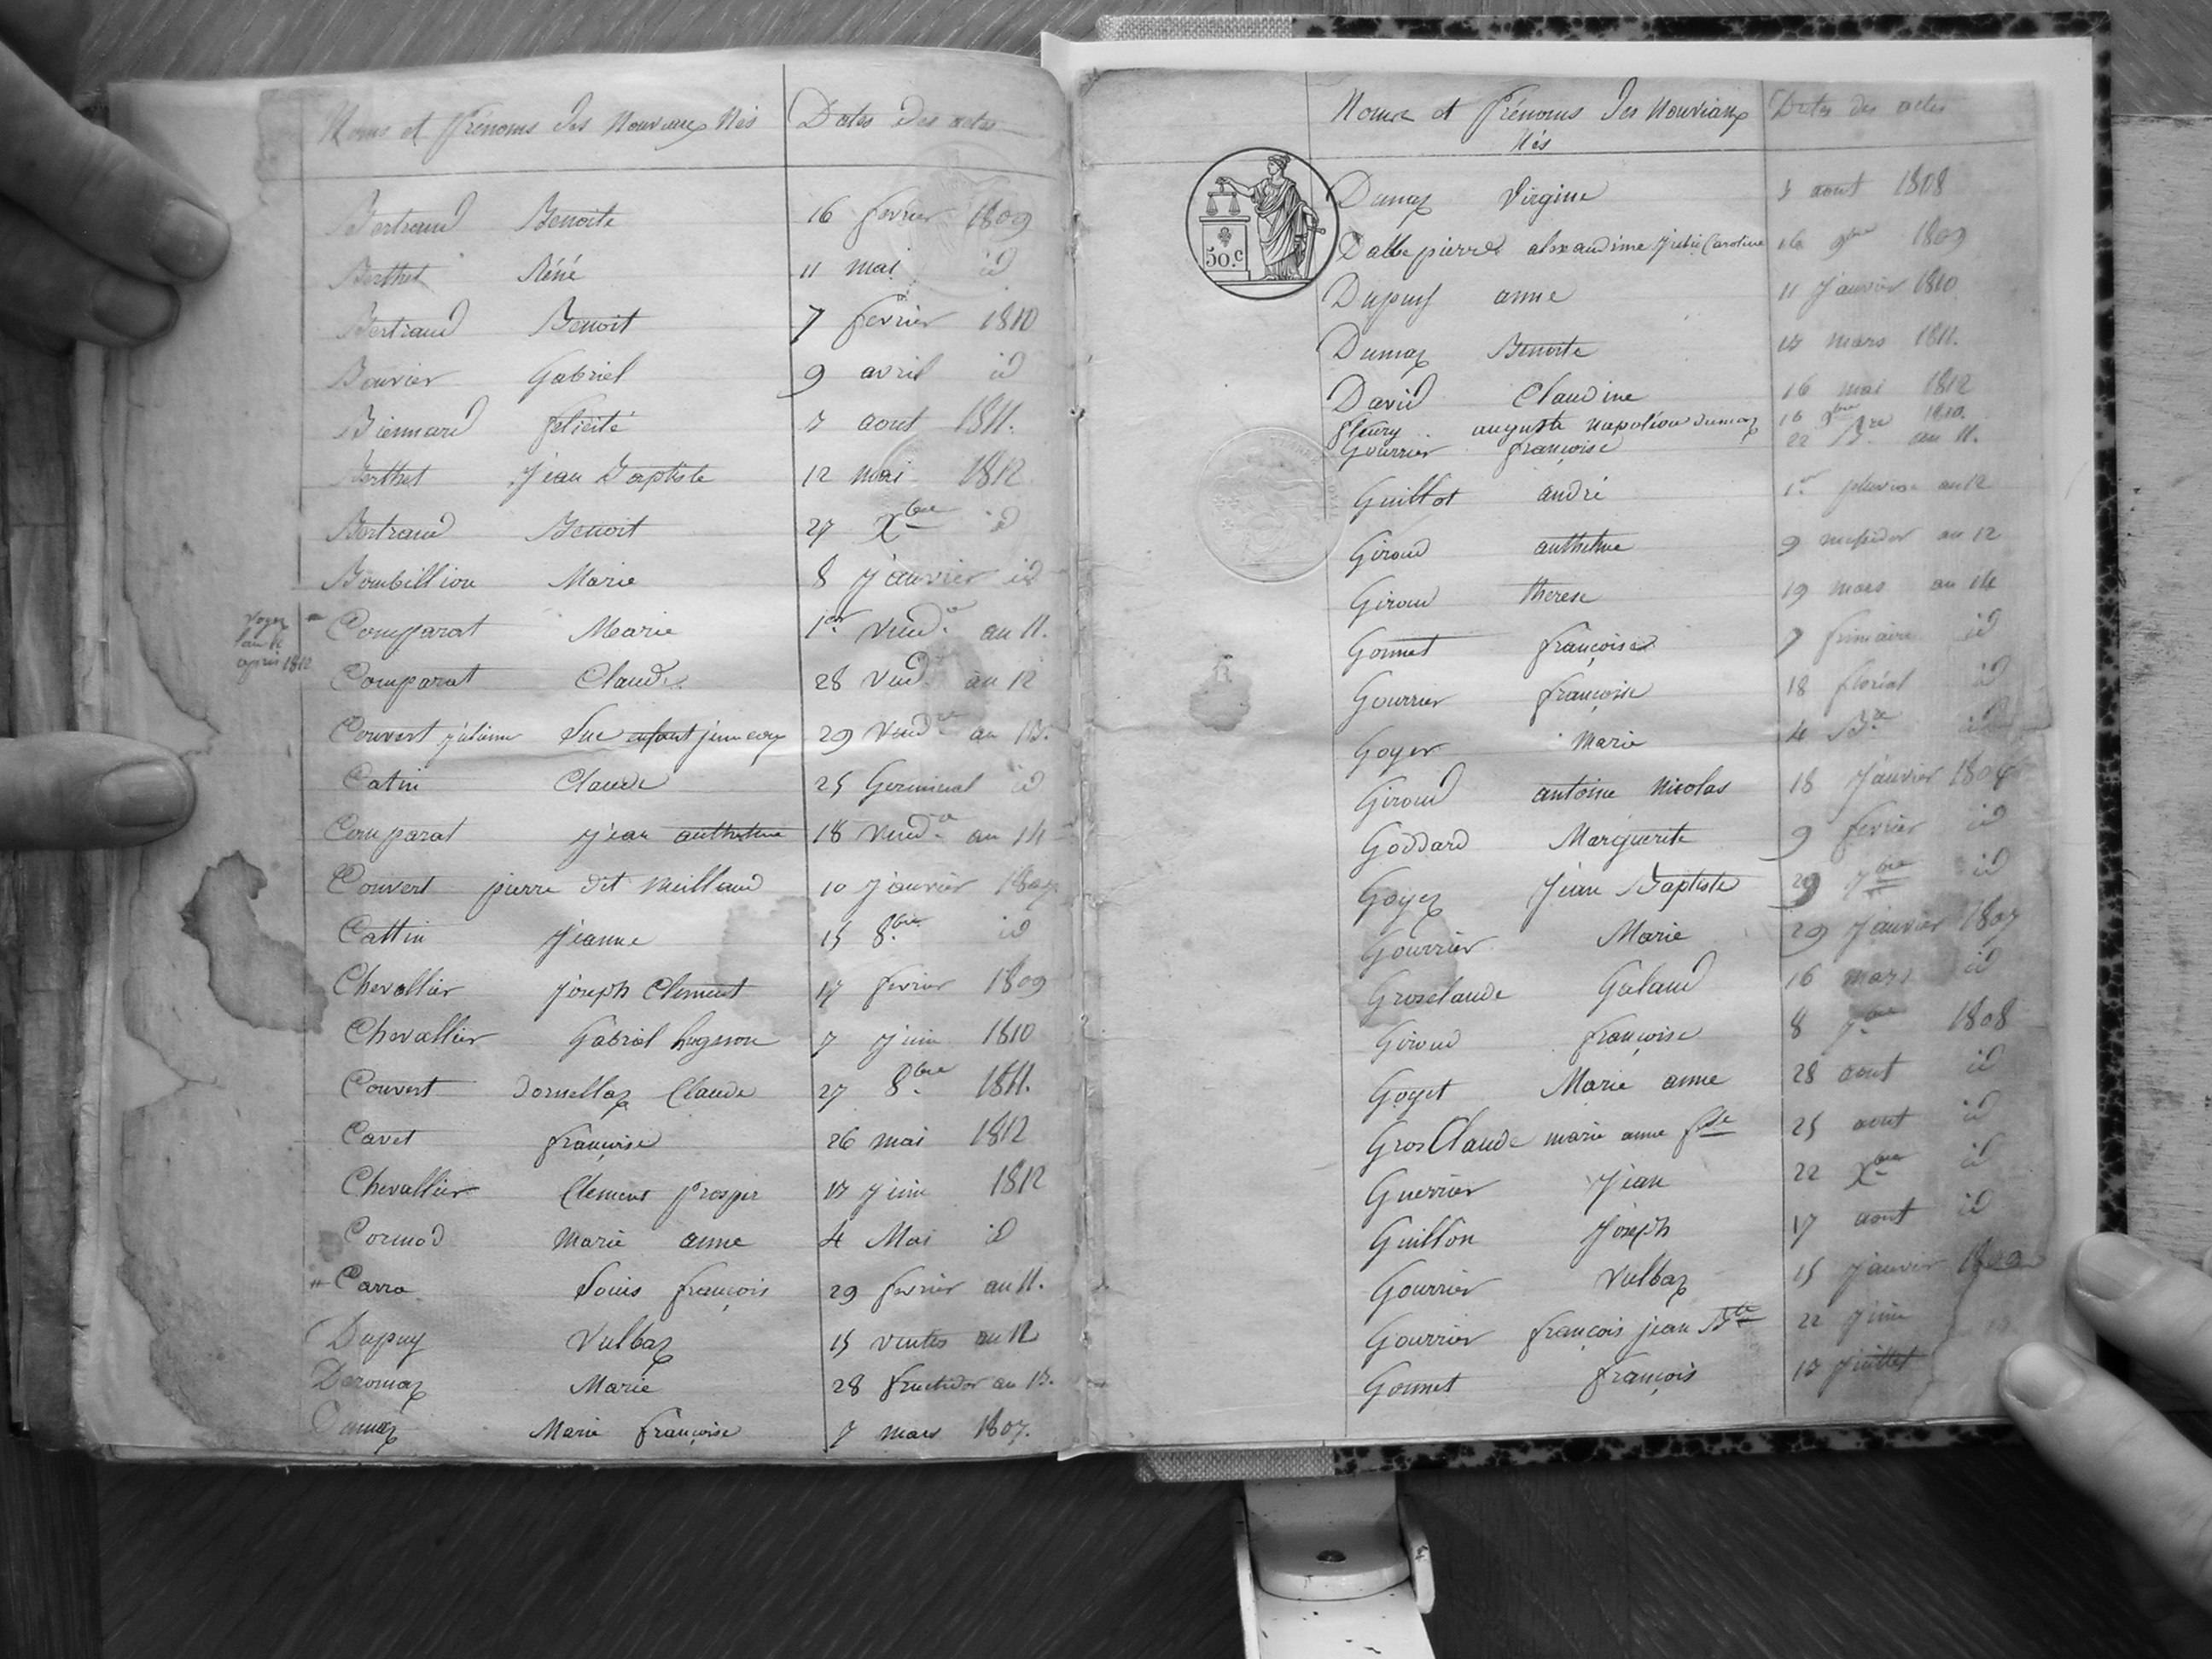 Noms et Prénoms des Nouveaux Nés Dates des actes
Bertrand Benoite 16 fevrier 1809
Berthet Réné 11 mai id
Bertrand Benoit 7 fevrier 1810
Bouvier Gabriel 9 avril id
Bienmard félicité 7 aout 1811.
Berthet Jean Baptiste 12 mai 1812
Bertrand Benoit 27 Xbre id
Bombillion Marie 8 Janvier id
Voyez
l'an 11
après 1812
Comparat Marie 1er Vend.re au 11.
Comparat Claude 28 Vend.re an 12
Couvert 29 Vend.re an 13.
Catin Claude 25 Germinal id
Comparat Jean anthelme 18 Vend.re an 14
Couvert pierre dit Meilland 10 Janvier 1807
Cattin Jeanne 15 8.bre id
Chevallier Joseph Clement 17 fevrier 1809
Chevallier Gabriel hugnon 7 Juin 1810
Couvert dornellaz Claude 27 8.bre 1811.
Cavet françoise 26 mai 1812
Chevallier Clement Prosper 13 Juin 1812
Cormod Marie anne 4 Mai id
Carra Louis françois 29 fevrier an 11.
Dupuy Vulbaz 15 ventôs an 12
Deromaz Marie 28 fructidor an 13.
Dumaz Marie françoise 7 mars 1807.
Noms et Prénoms des Nouveaux Dates des actes
Nés
50.c
Dumaz Virgine 3 aout 1808
Dallepierre alexandrine Julie Caroline 16 9bre 1809
Dupuy anne 11 Janvier 1810
Dumaz Benoite 13 mars 1811.
David Claudine 16 mai 1812
fleury auguste Napoléon dumaz 16 1810.
Gourrier françoise 22 B.re an 11.
Guillot andré 1.er pluviose an 12
Giroud anthelme 9 messidor an 12
Giroud therese 19 mars an 14
Gonnet françoise 7 frimaire id
Gourrier françoise 18 floréal id
Goyer Marie 4 B.re id
Giroud antoine Nicolas 18 Janvier
Goddard Marguerite 9 fevrier id
Goyez Jean Baptiste 29 7bre id
Gourrier Marie 29 Janvier 1807
Grosclaude Galand 16 mars id
Giroud françoise 8 7bre 1808
Goyet Marie anne 28 aout id
GrosClaude marie anne fse 25 aout id
Guerrier Jean 22 Xbre id
Guillon Joseph 17 aout id
Gourrier Vulbaz 15 Janvier 1809
Gourrier françois jean Bte 22 Juin
Gonnet françois 13 Juillet